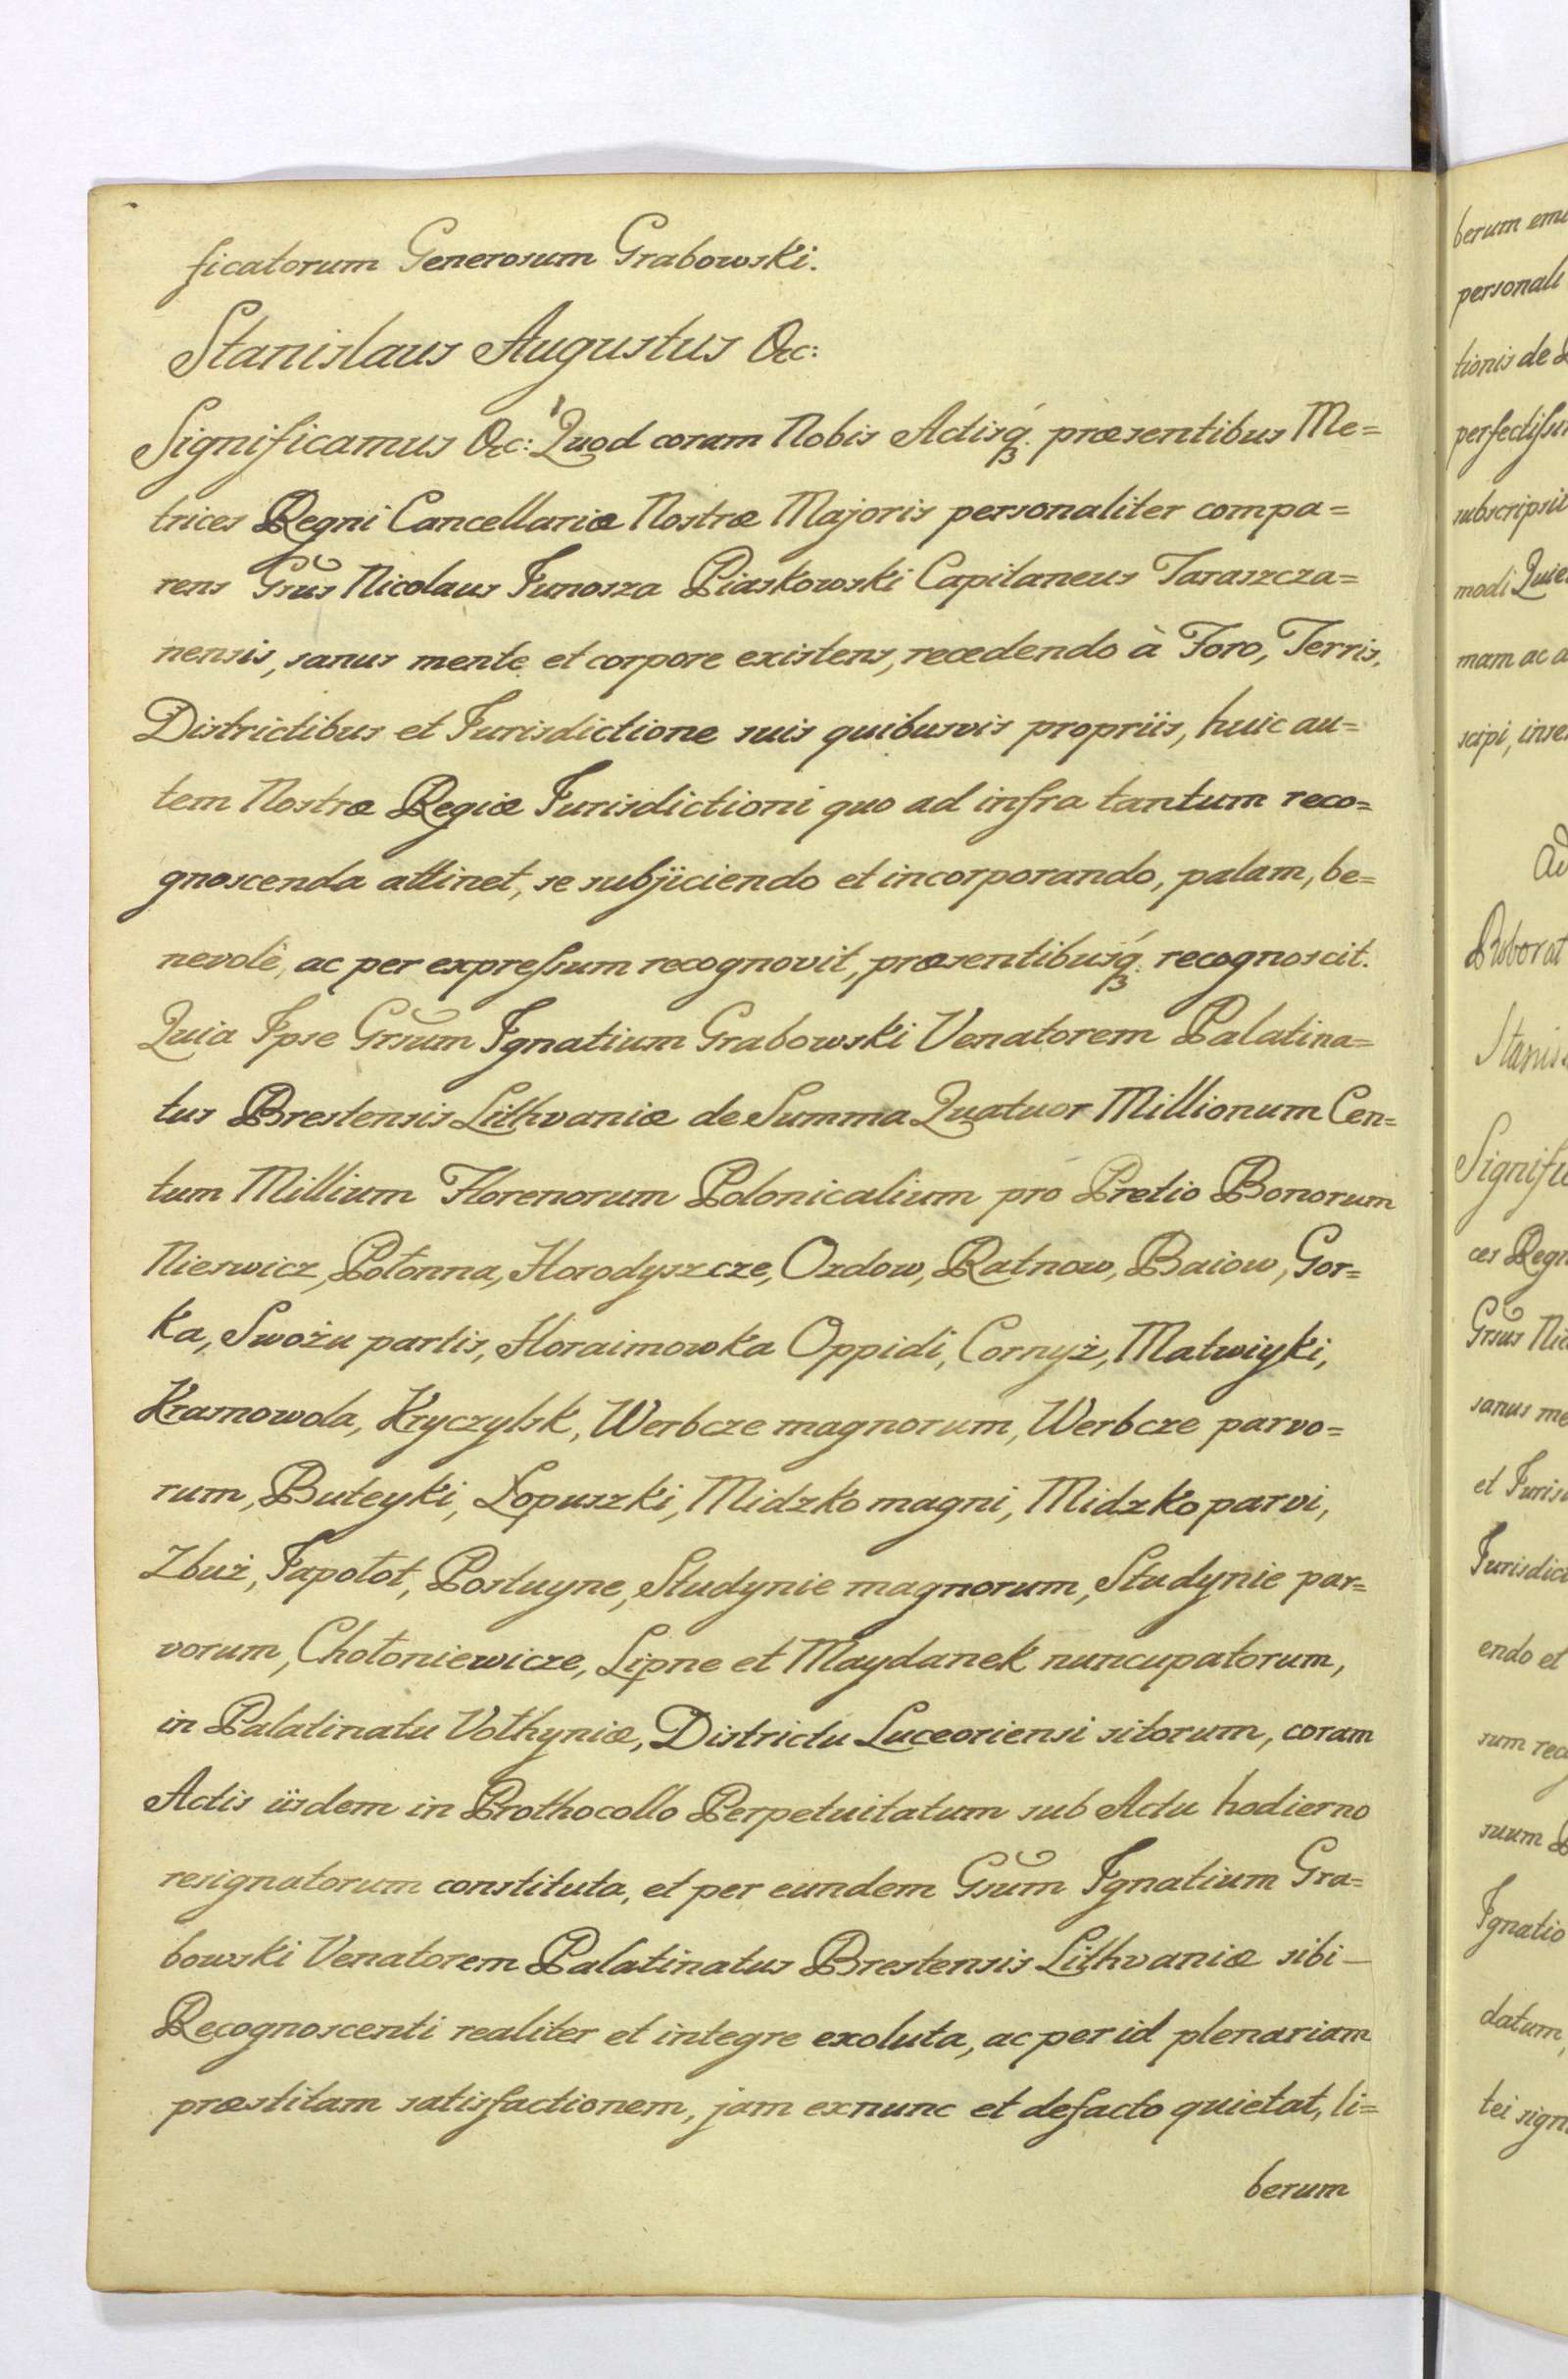 ficatorum Generosum Grabowski.
Stanislaus Augustus &c:
Significamus &c: Quod coram Nobis Actisq́ꝫ præsentibus Me=
trices Regni Cancellariæ Nostræ Majoris personaliter compa=
rens Grsus Nicolaus Junosza Piaskowski Capitaneus Taraszcza=
nensis, sanus mente et corpore existens, recedendo à Foro, Terris,
Districtibus et Jurisdictione suis quibusvis propriis, huic au=
tem Nostræ Regiæ Jurisdictioni quo ad infra tantum reco=
gnoscenda attinet, se subjiciendo et incorporando, palam, be=
nevolè, ac per expreſsum recognovit, præsentibusq́ꝫ recognoscit.
Quia Ipse Grsum Ignatium Grabowski Venatorem Palatina=
tus Brestensis Lithvaniæ de Summa Quatuor Millionum Cen=
tum Millium Florenorum Polonicalium pro Pretio Bonorum
Nieswicz, Połonna, Horodyszcze, Ozdow, Ratnow, Baiow, Gor=
ka, Swożu partis, Horaimowka Oppidi, Cornyż, Matwiyki,
Krasnowola, Kryczylsk, Werbcze magnorum, Werbcze parvo=
rum, Buteyki, Łopuszki, Midzko magni, Midzko parvi,
Zbuż, Japołot, Postuyne, Studynie magnorum, Studynie par=
vorum, Chołoniewicze, Lipne et Maydanek nuncupatorum,
in Palatinatu Vołhyniæ, Districtu Luceoriensi sitorum, coram
Actis iisdem in Prothocollo Perpetuitatum sub Actu hodierno
resignatorum constituta, et per eundem Gsum Ignatium Gra=
bowski Venatorem Palatinatus Brestensis Lithvaniæ sibi –
Recognoscenti realiter et integre exoluta, ac per id plenariam
præstitam satisfactionem, jam exnunc et defacto quietat, li=
berum
berum
personali
tionis de
perfectiſsi
subscripsit
modi Quie
mam ac a
scipi, inse
Stanis
Signific
ces Regn
Grsus Nic
sanus me
et Juris
Jurisdic
endo et
sum rec
suum
Ignatio
datum,
tei sign